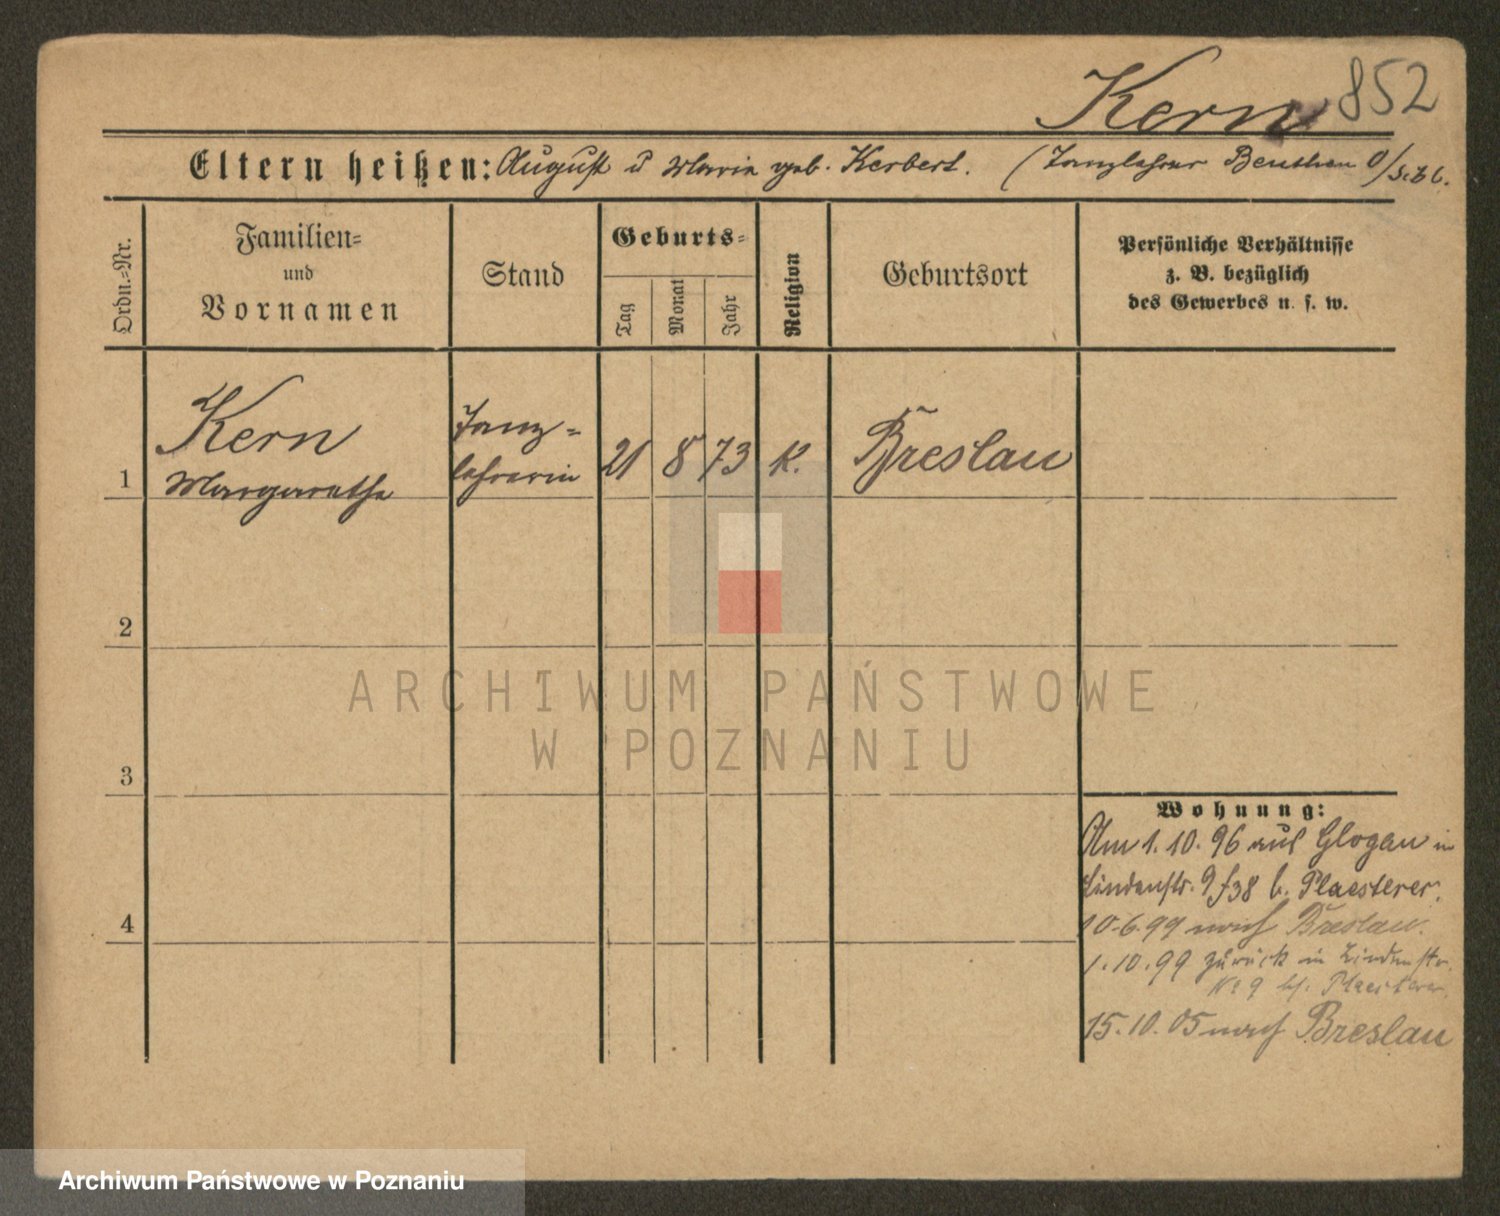 Kern 852
Eltern heißen: August u Maria geb. Kerbert. (Tanzlehrer Beuthen O/S.
Ordn.-Nr.
Familien-
und
Vornamen
Stand
Geburts-
Tag
Monat
Jahr
Religion
Geburtsort
Persönliche Verhältnisse
z. B. bezüglich
des Gewerbes u. s. w.
Kern
Margarethe
Tanz-
lehrerin
1 21 8 73 K. Breslau
2
ARCHIWUM PAŃSTWOWE
W POZNANIU
3
Wohnung:
Am 1.10.96 aus Glogau in
Lindenstr. 9 b. Plaesterer.
4
10.6.99 nach Breslau.
1.10.99 zurück in Lindenstr.
No 9 bei Plaesterer.
15.10.05 nach Breslau
Archiwum Państwowe w Poznaniu